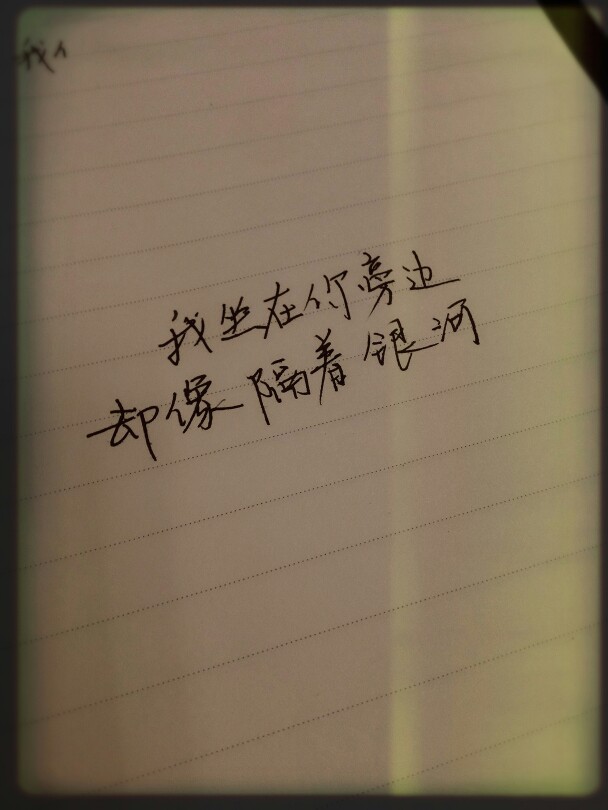 我
我坐在你旁边
却像隔着银河